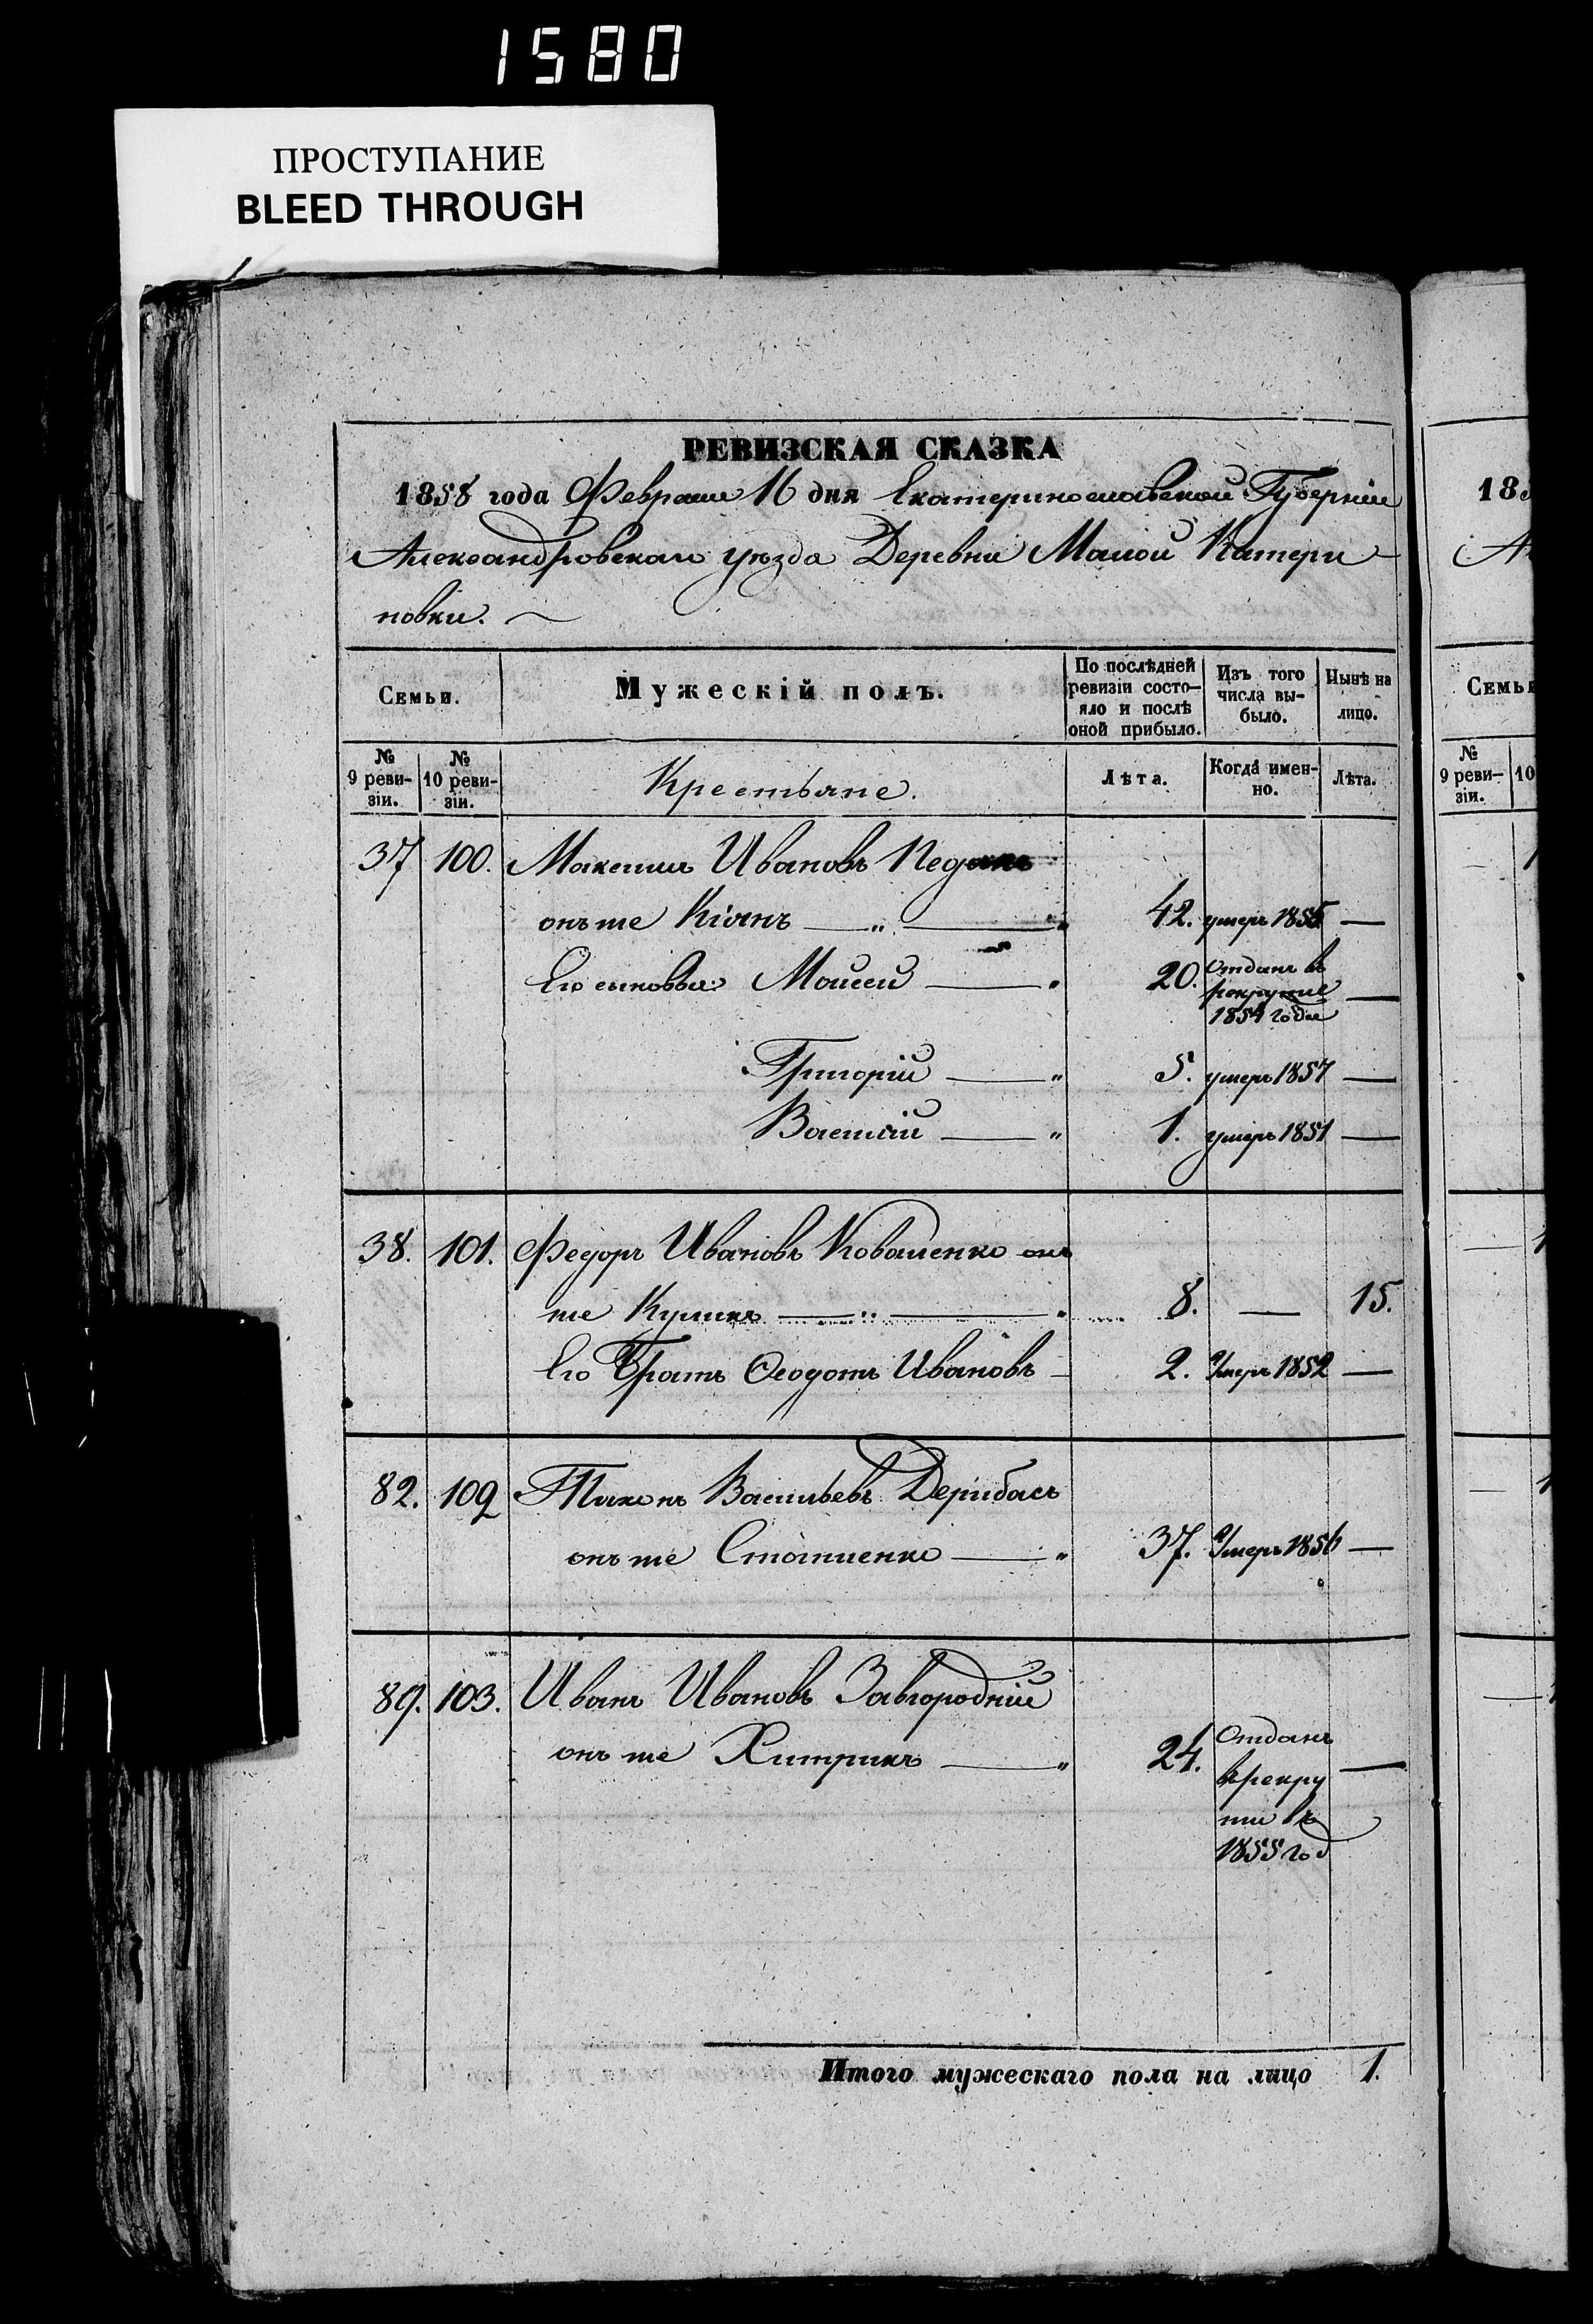 1580
ПРОСТУПАНИЕ
BLEED THROUGH
РЕВИЗСКАЯ СКАЗКА
1858 года Февраля 16 дня Екатеринославской Губерніи
Александровскаго уѣзда Деревни Малой Катери
новки.
Семьи.
Мужескій полъ.
По послѣдней ревизіи состо-яло и послѣ оной прибыло.
Изъ того числа вы-было.
Нынѣ на лицо.
№ 9 реви-зіи.
№ 10 реви-зіи.
Крестьяне.
Лѣта.
Когда имен-но.
Лѣта.
37 100. Максимъ Ивановъ
онъ же Кіянъ — „ — 42. умеръ 1855 —
Его сыновья: Моисей — „ 20. Отданъ въ
рекруты —
1854 года
Григорій — „ 5. умеръ 1857 —
Василій — „ 1. умеръ 1851 —
38. 101. Федоръ Ивановъ Коваленко онъ
же Куликъ — „ — „ 8. — 15.
Его Братъ Феодотъ Ивановъ — 2. Умеръ 1852 —
82. 102 Тихонъ Васильевъ Дерибасъ
онъ же — „ 37. Умеръ 1856 —
89. 103. Иванъ Ивановъ Завгородній
онъ же Хитрикъ — „ 24. Отданъ —
врекру
ты въ
1855 год
Итого мужескаго пола на лицо 1.
185
Ал
Семьи
№ 9 реви-зіи.
10